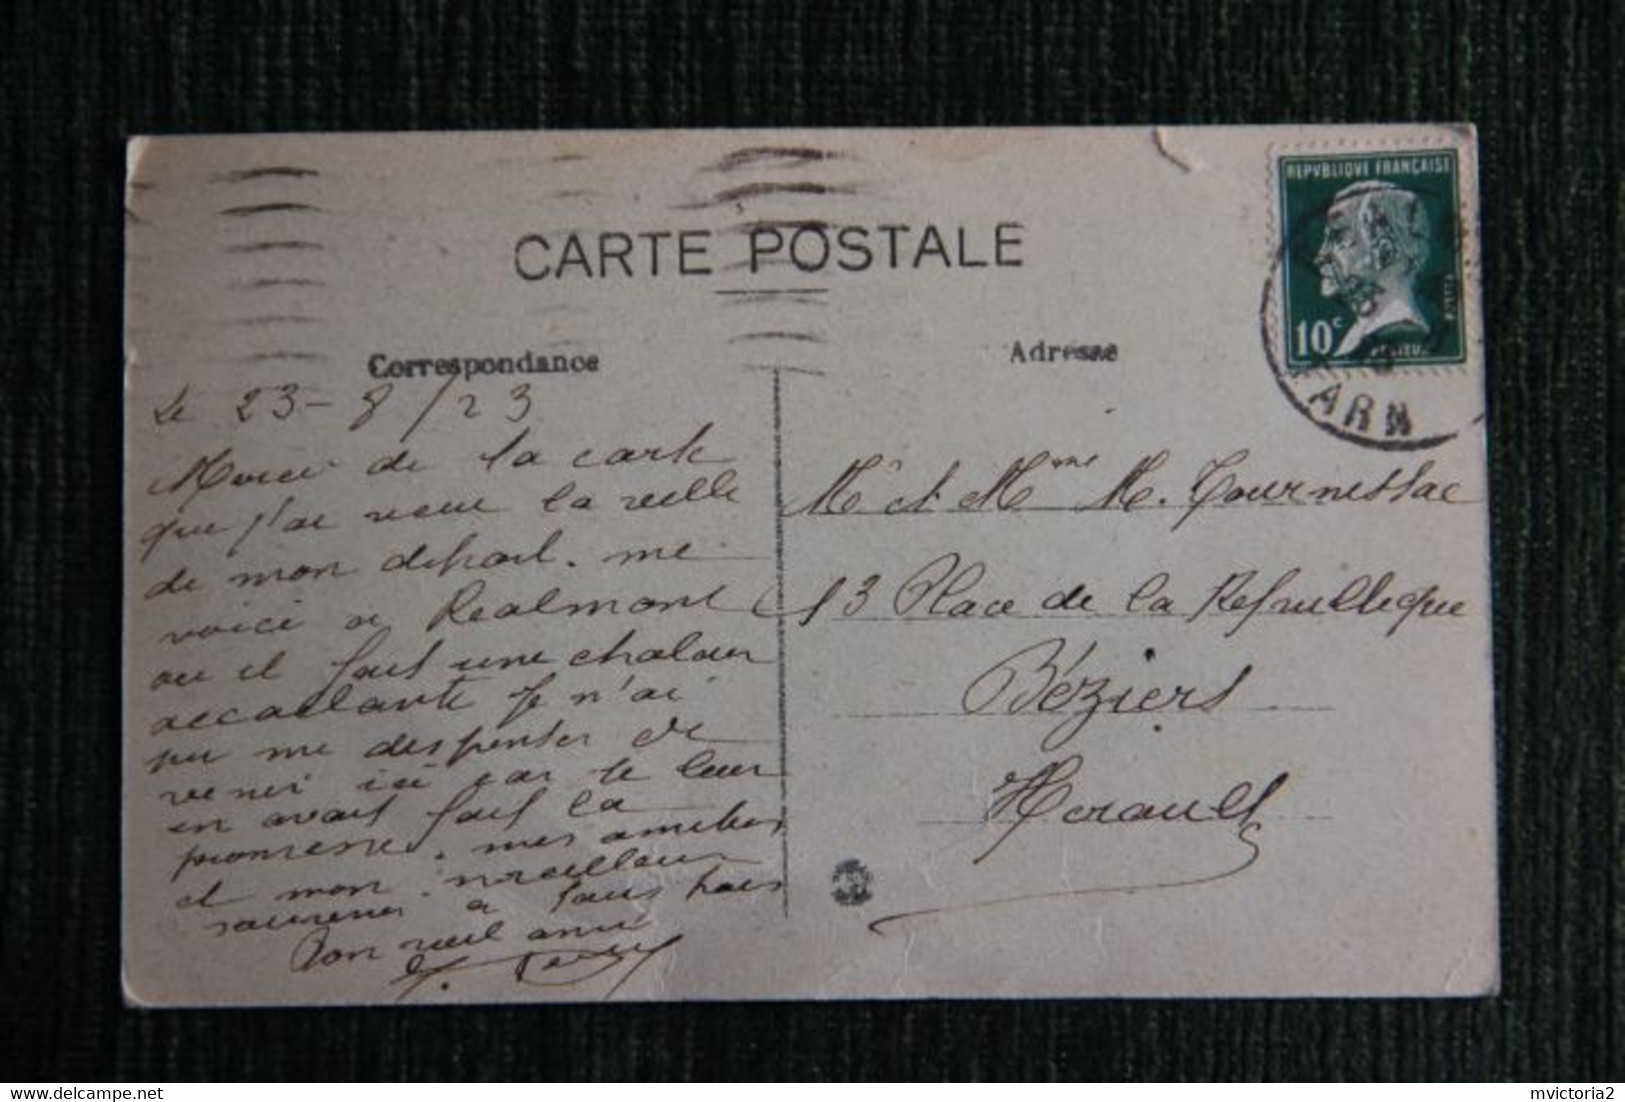 CARTE POSTALE
REPVBLIQVE FRANÇAISE
10c
TARN
Correspondance
Le 23-8/23
Merci de la carte
que j'ai reçue la veille
de mon départ. me
voici a Realmont
ou il fait une chaleur
accablante je n'ai
pu me despenser de
venir ici car je leur
en avait fait la
promesse. mes amities
et mon meilleur
souvenir a tous trois
Ton vieil ami
Adresse
Mr et Mme M. Tournessac
13 Place de la Republique
Béziers
Herault
delcampe.net
mvictoria2